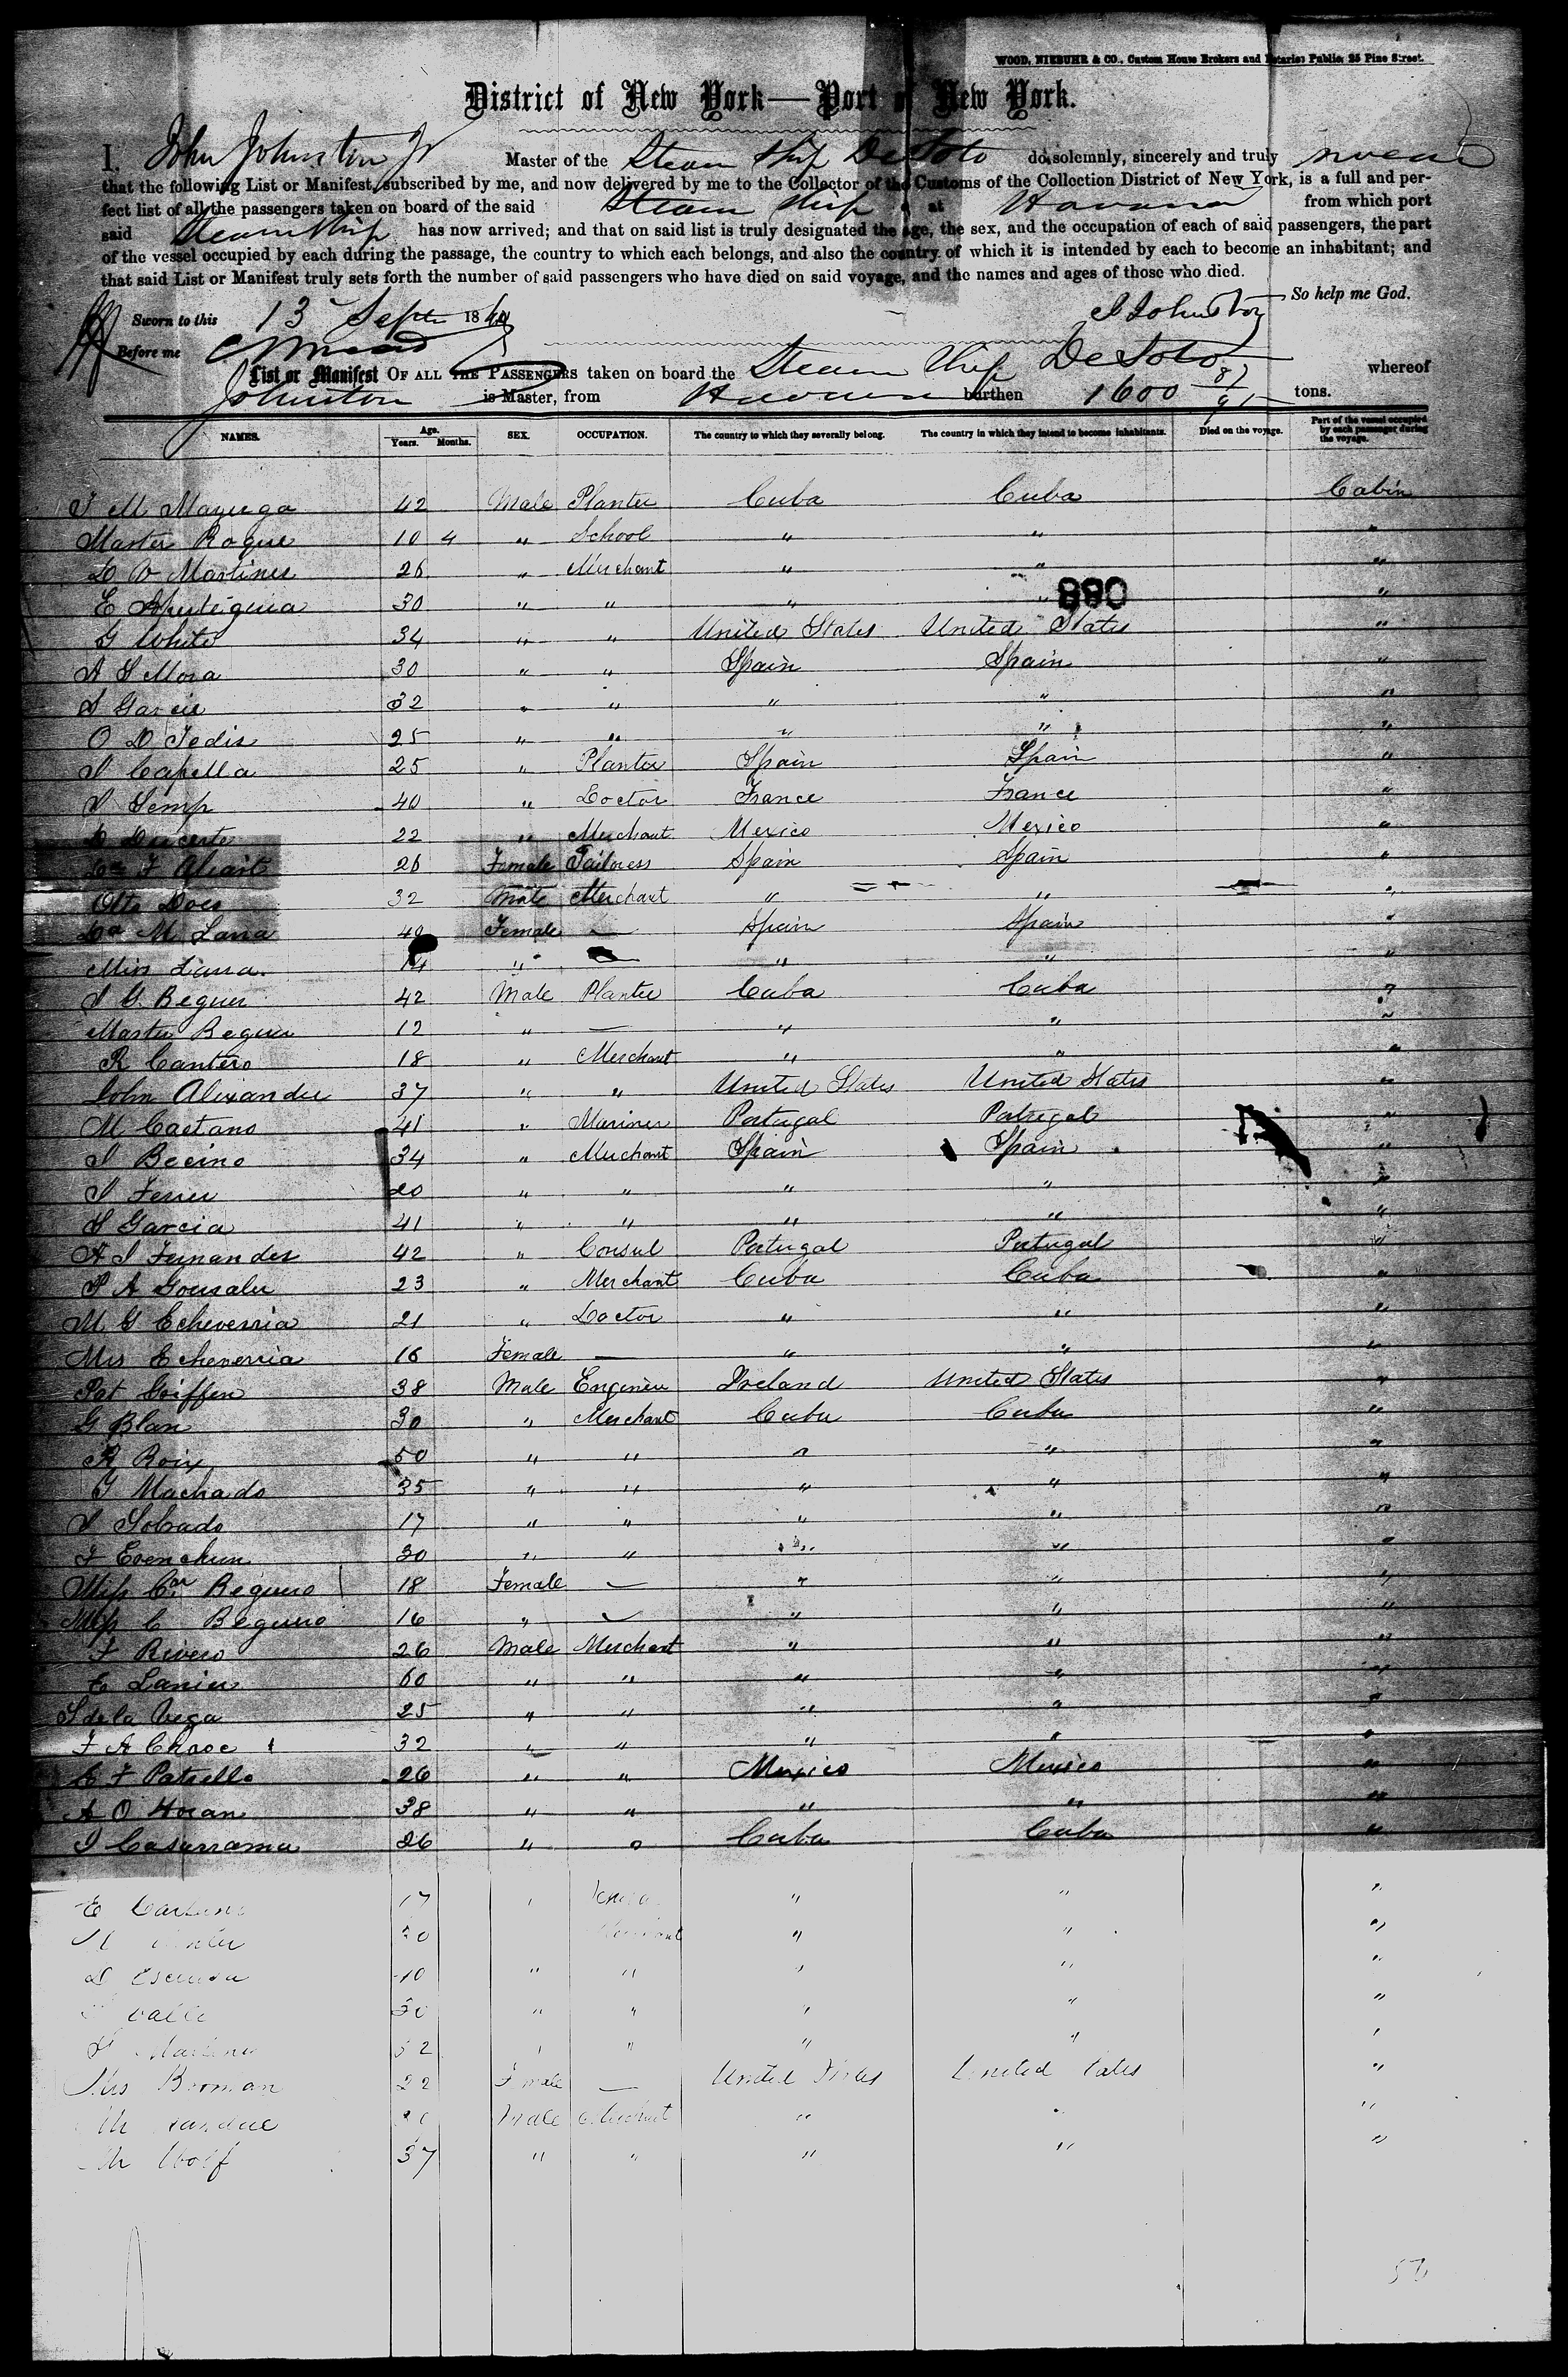 WOOD, NIEBUHR & CO., Custom House Brokers and Notaries Public, 25 Pine Street.
District of New York—Port of New York.
I, John Johnston Jr Master of the Steam Ship De Soto do solemnly, sincerely and truly swear
that the following List or Manifest, subscribed by me, and now delivered by me to the Collector of the Customs of the Collection District of New York, is a full and per-
fect list of all the passengers taken on board of the said Steam Ship at Havana from which port
said Steam Ship has now arrived; and that on said list is truly designated the age, the sex, and the occupation of each of said passengers, the part
of the vessel occupied by each during the passage, the country to which each belongs, and also the country of which it is intended by each to become an inhabitant; and
that said List or Manifest truly sets forth the number of said passengers who have died on said voyage, and the names and ages of those who died.
So help me God.
Sworn to this 13 Sept 18
J Johnston
Before me
List or Manifest OF ALL THE PASSENGERS taken on board the Steam Ship De Soto whereof
Johnston is Master, from Havana burthen 1600 tons.
NAMES. Age. Years. Months. SEX. OCCUPATION. The country to which they severally belong. The country in which they intend to become inhabitants. Died on the voyage. Part of the vessel occupied by each passenger during the voyage.
J M Mayuga 42 Male Planter Cuba Cuba Cabin
Master Roque 10 4 " School " " "
D V Martines 26 " Merchant " " "
E 30 " " " " "
880
G White 34 " " United States United States "
A S Mora 30 " " Spain Spain "
S Garcia 32 " " " " "
O D Tedis 25 " " " " "
J Capella 25 " Planter Spain Spain "
J Semp 40 " Doctor France France "
D 22 " Merchant Mexico Mexico "
Da F 26 Female Tailoress Spain Spain "
Otto Does 32 Male Merchant " " "
Da M Lana 40 Female — Spain Spain "
Miss Lana 14 " — " " "
J G Beguer 42 Male Planter Cuba Cuba "
Master Beguer 12 " — " " "
R Cantero 18 " Merchant " " "
John Alexander 37 " " United States United States "
M Caetano 41 " Mariner Portugal Portugal "
J Becino 34 " Merchant Spain Spain "
J Ferrer 20 " " " " "
S Garcia 41 " " " " "
A J Fernandes 42 " Consul Portugal Portugal "
P A Gonsales 23 " Merchant Cuba Cuba "
M G Echeverria 21 " Doctor " " "
Mrs Echeverria 16 Female — " " "
Pat Goiffen 38 Male Engineer Ireland United States "
G Blan 30 " Merchant Cuba Cuba "
R Roix 50 " " " " "
G Machado 35 " " " " "
J Sobrado 17 " " " " "
F 30 " " " " "
Miss Car Beguero 18 Female — " " "
Miss C Beguero 16 " — " " "
F Rivero 26 Male Merchant " " "
E Lanier 60 " " " " "
S de la Vega 25 " " " " "
F A 32 " " " " "
C F Patrello 26 " " Mexico Mexico "
A O Horan 38 " " " " "
J Casurrama 26 " " Cuba Cuba "
E 17 " " " "
30 Merchant " " "
D 40 " " " " "
Valle 50 " " " " "
Martines 52 " " " " "
Mrs Booman 22 Female — United States United States "
Mr Male Merchant " " "
Mr Wolf 37 " " " " "